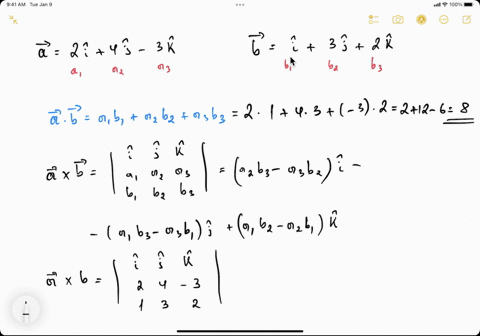 9:41 AM Tue Jan 9 100%
a⃗ = 2î + 4ĵ − 3k̂
a₁ a₂ a₃
b⃗ = î + 3ĵ + 2k̂
b₁ b₂ b₃
a⃗ . b⃗ = a₁b₁ + a₂b₂ + a₃b₃ = 2 · 1 + 4 · 3 + (−3) · 2 = 2 + 12 − 6 = 8
a⃗ × b⃗ = | î ĵ k̂ | = (a₂b₃ − a₃b₂) î −
| a₁ a₂ a₃ |
| b₁ b₂ b₃ |
− (a₁b₃ − a₃b₁) ĵ + (a₁b₂ − a₂b₁) k̂
a⃗ × b = | î ĵ k̂ |
| 2 4 −3 |
| 1 3 2 |